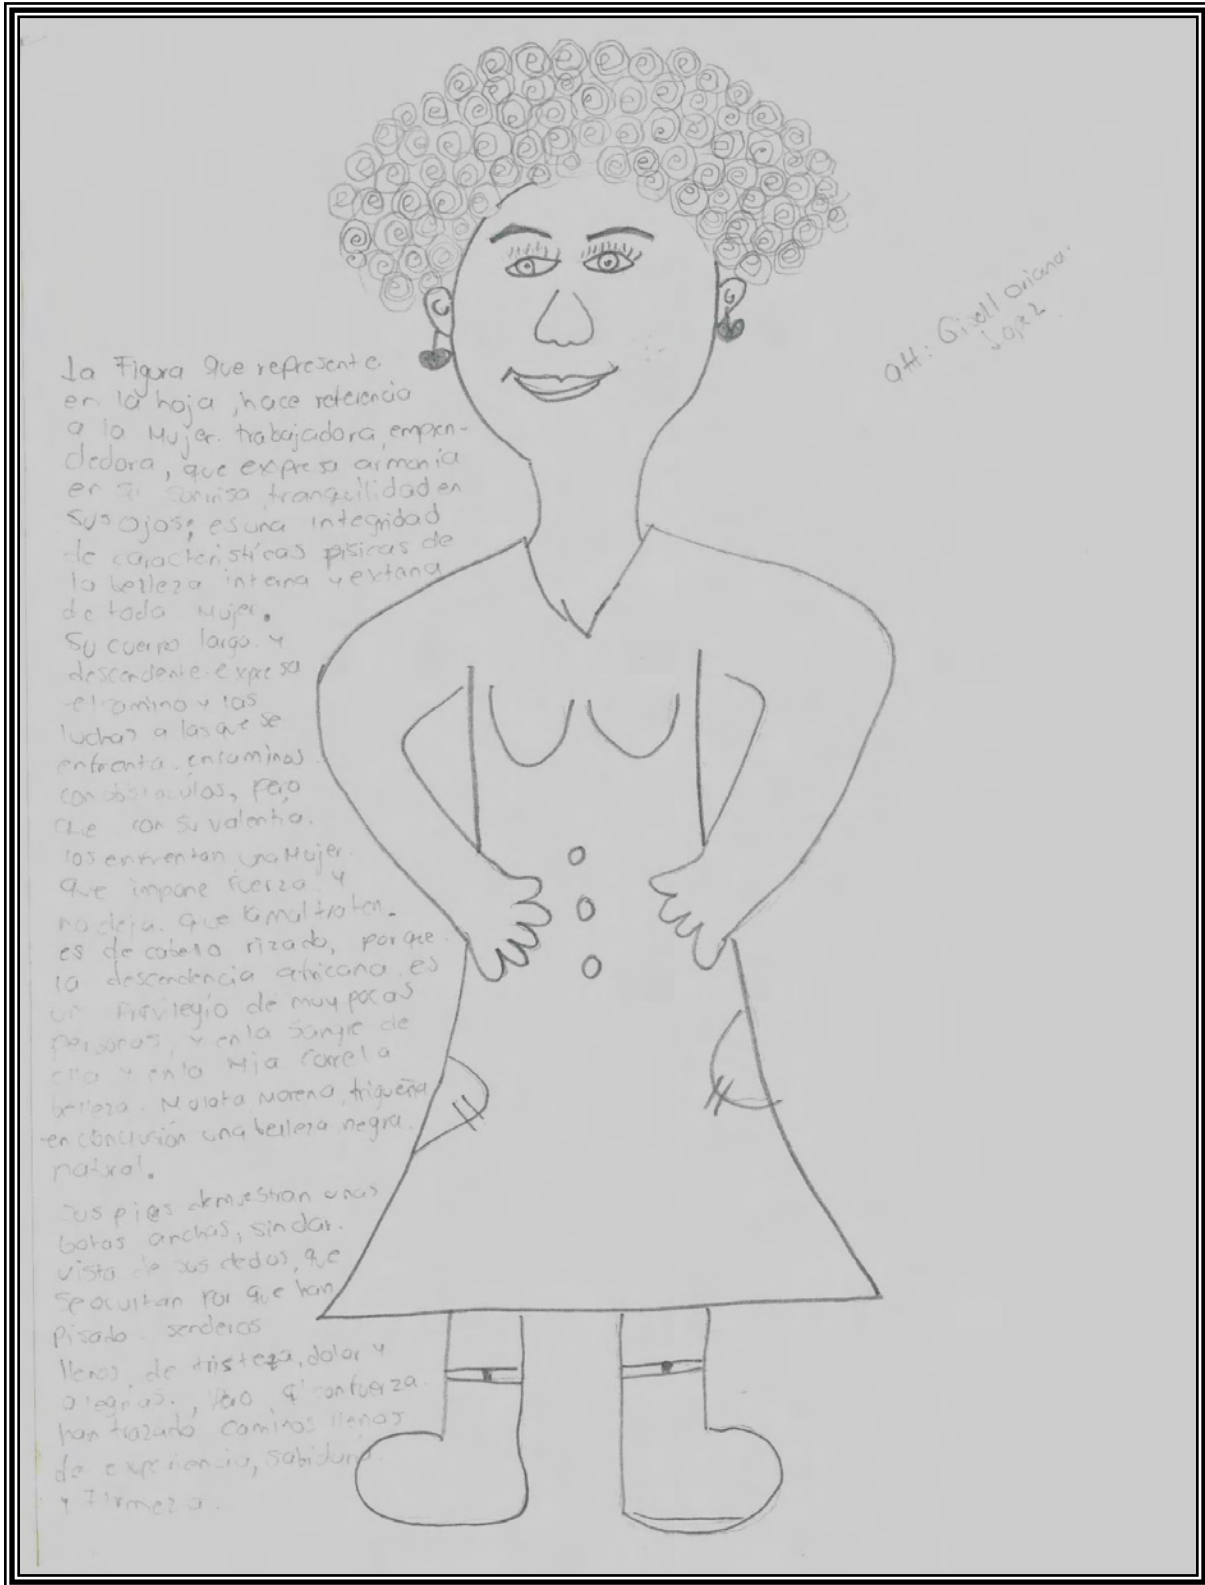 La Figura que represente
en la hoja, hace referencia
a la Mujer. trabajadora, empren-
dedora, que expresa armonia
en su sonrisa, tranquilidad en
sus ojos; es una integridad
de características pisicas de
la belleza interna y externa
de toda Mujer.
Su cuerpo largo. y
descendente. expresa
el camino y las
luchas a las que se
enfrenta. en caminos
con obstaculos, pero
que con su valentia.
los enfrentan una Mujer.
que impone fuerza y
no deja. que la maltraten.
es de cabello rizado, porque.
la descendencia africana es
un Privilegio de muy pocas
personas, y en la sangre de
ella y en la Mia corre la
belleza. Mulata Morena, trigueña
en conclusión una belleza negra.
natural.
Sus pies demuestran unas
botas anchas, sin dar.
vista de sus dedos, que
se ocultan por que han
Pisado senderos
llenos de tristeza, dolor y
alegrias., Pero q' con fuerza.
han trazado caminos llenos
de experiencia, sabiduria
y Firmeza.
att: Gisell Oriana.
Lopez.